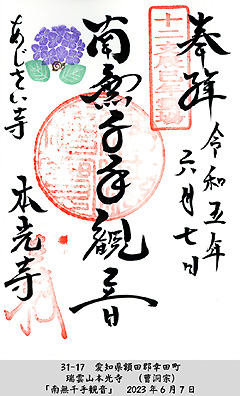 奉拝
令和五年
六月七日
南無千手観音
あじさい寺
本光寺
31-17 愛知県額田郡幸田町
瑞雲山本光寺 (曹洞宗)
「南無千手観音」 2023年6月7日